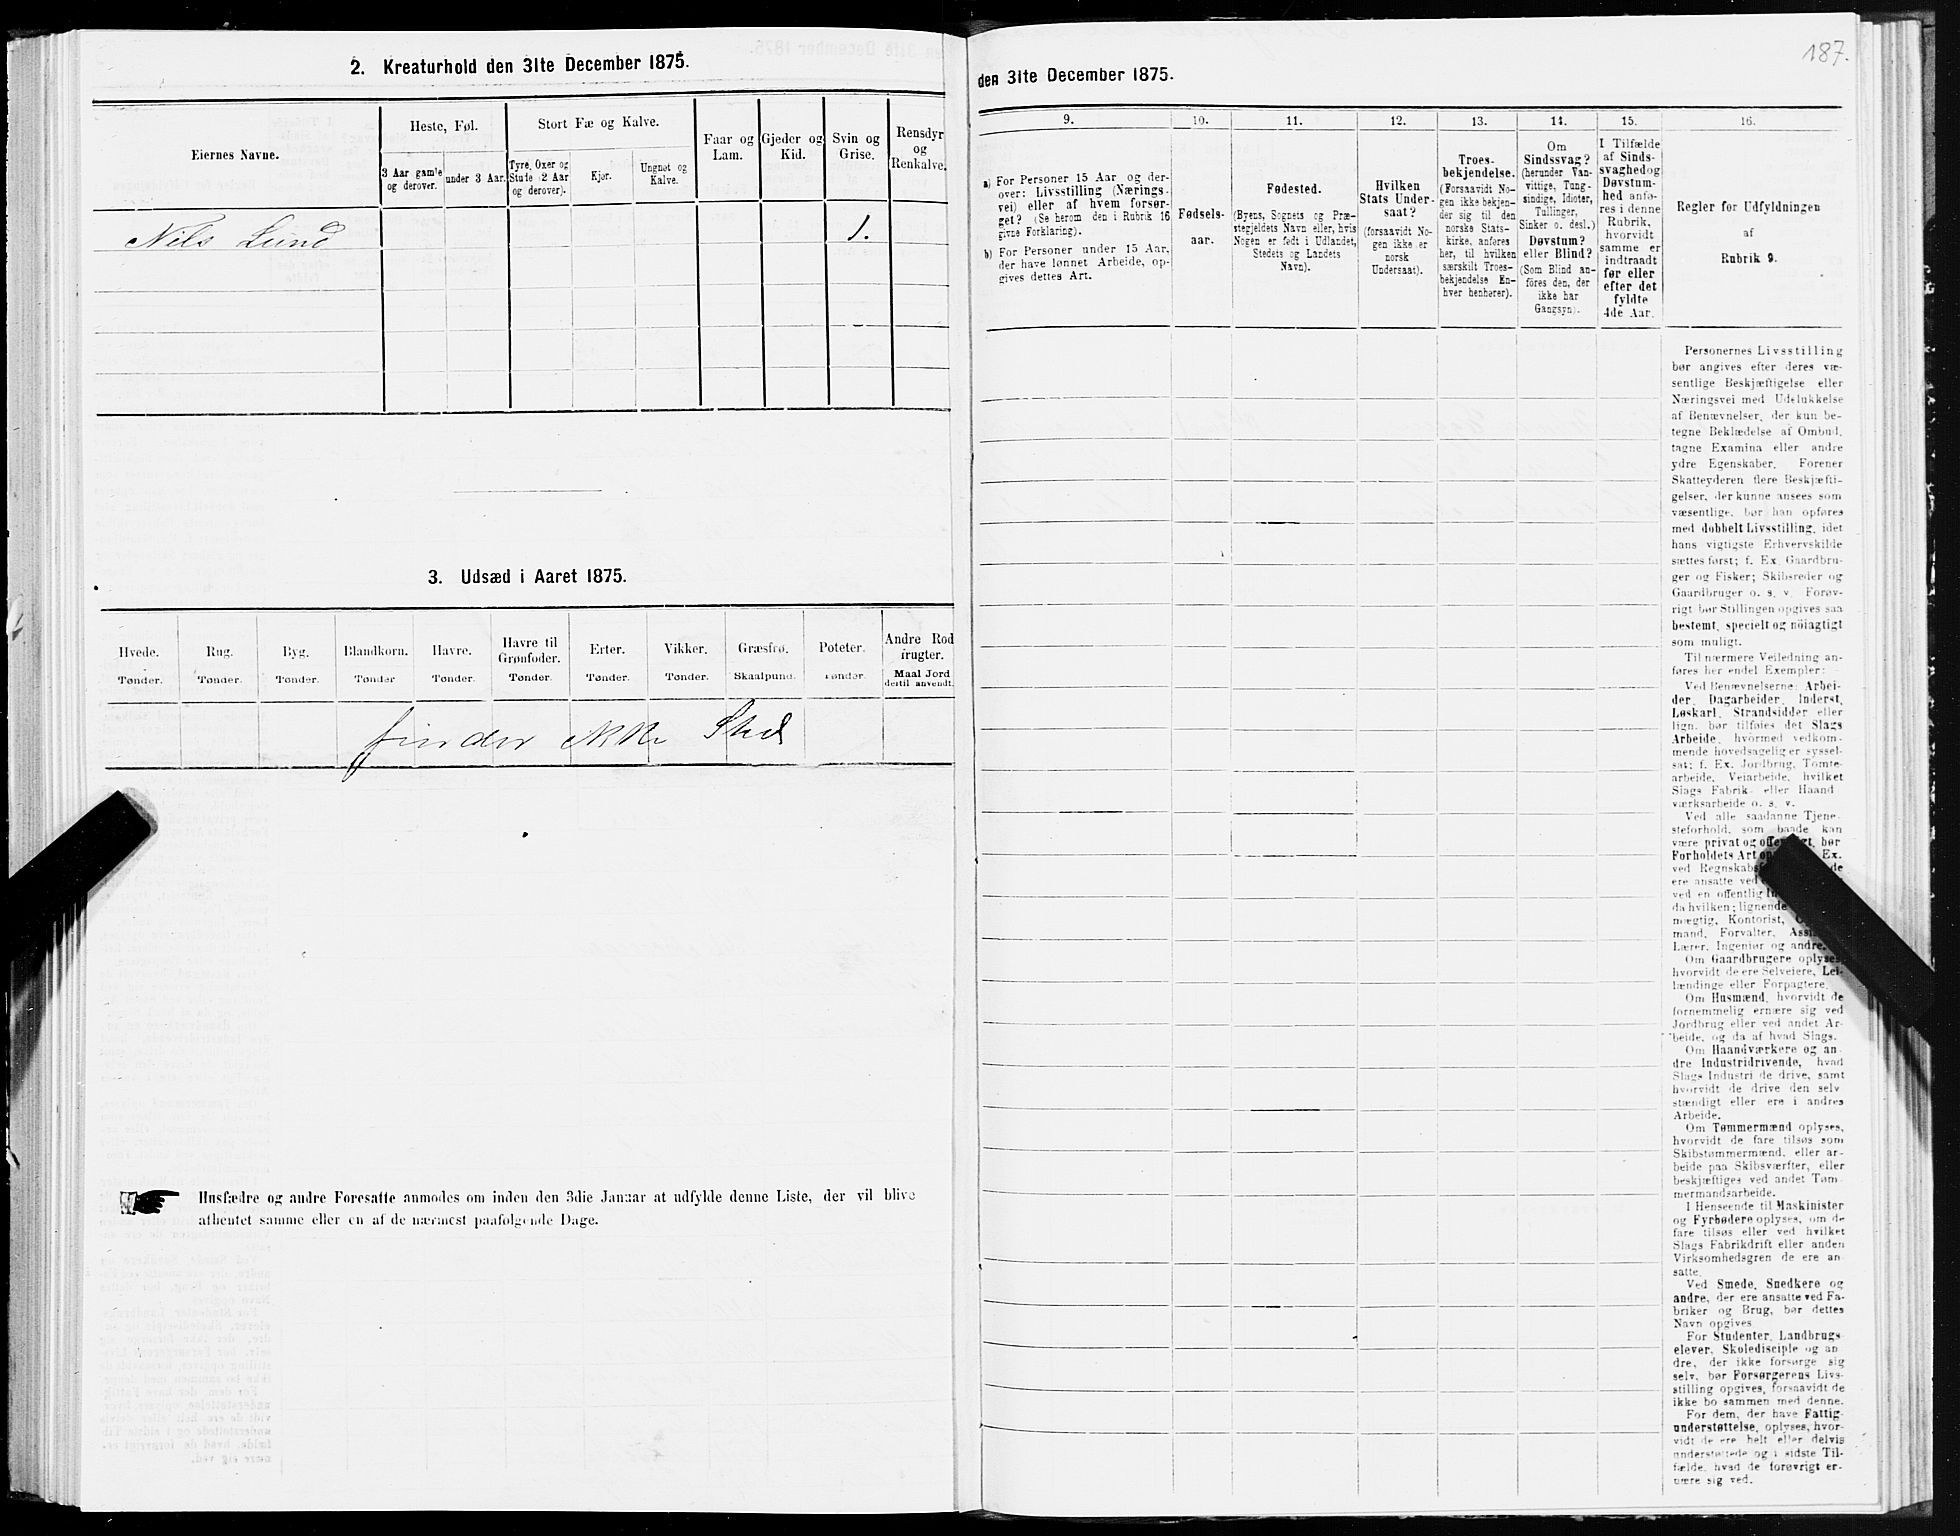 2. Kreaturhold den 31te December 1875.
Eiernes Navne.
Heste, Føl.
3 Aar gamle og derover.
under 3 Aar.
Stort Fæ og Kalve.
Tyre, Oxer og Stute (2 Aar og derover).
Kjør.
Ungnøt og Kalve.
Faar og Lam.
Gjeder og Kid.
Svin og Grise.
Rensdyr og Renkalve.
Nils Lund
1.
3. Udsæd i Aaret 1875.
Hvede. Tønder.
Rug. Tønder.
Byg. Tønder.
Blandkorn. Tønder
Havre. Tønder.
Havre til Grønfoder. Tønder.
Erter. Tønder.
Vikker. Tønder.
Græsfrø. Skaalpund.
Poteter. Tønder.
Andre Rodfrugter. Maal Jord dertil anvendt.
finder ikke Sted
Husfædre og andre Foresatte anmodes om inden den 3die Januar at udfylde denne Liste, der vil blive
afhentet samme eller en af de nærmest paafølgende Dage.
187.
den 31te December 1875.
9.
a) For Personer 15 Aar og der-
over: Livsstilling (Nærings-
vei) eller af hvem forsør-
get? (Se herom den i Rubrik 16
givne Forklaring).
b) For Personer under 15 Aar,
der have lønnet Arbeide, op-
gives dettes Art.
10.
Fødsels-
aar.
11.
Fødested.
(Byens, Sognets og Præ-
stegjeldets Navn eller, hvis
Nogen er født i Udlandet,
Stedets og Landets
Navn).
12.
Hvilken
Stats Under-
saat?
(forsaavidt No-
gen ikke er
norsk
Undersaat).
13.
Troes-
bekjendelse.
(Forsaavidt No-
gen ikke bekjen-
der sig til den
norske Stats-
kirke, anføres
her, til hvilken
særskilt Troes-
bekjendelse En-
hver henhører).
14.
Om
Sindssvag?
(herunder Van-
vittige, Tung-
sindige, Idioter,
Tullinger,
Sinker o. desl.)
Døvstum?
eller Blind?
(Som Blind an-
føres den, der
ikke har
Gangsyn).
15.
I Tilfælde
af Sinds-
svaghed og
Døvstum-
hed anfø-
res i denne
Rubrik,
hvorvidt
samme er
indtraadt
før eller
efter det
fyldte
4de Aar.
16.
Regler for Udfyldningen
af
Rubrik 9.
Personernes Livsstilling
bør angives efter deres væ-
sentlige Beskjæftigelse eller
Næringsvei med Udelukkelse
af Benævnelser, der kun be-
tegne Beklædelse af Ombud,
tagne Examina eller andre
ydre Egenskaber. Forener
Skatteyderen flere Beskjæfti-
gelser, der kunne ansees som
væsentlige, bør han opføres
med dobbelt Livsstilling, idet
hans vigtigste Erhvervskilde
sættes først; f. Ex. Gaardbru-
ger og Fisker; Skibsreder og
Gaardbruger o. s. v. Forøv-
rigt bør Stillingen opgives saa
bestemt, specielt og nöiagtigt
som muligt.
Til nærmere Veiledning an-
føres her endel Exempler:
Ved Benævnelserne: Arbei-
der, Dagarbeider, Inderst,
Løskarl, Strandsidder eller
lign. bør tilføies det Slags
Arbeide, hvormed vedkom-
mende hovedsagelig er syssel-
sat; f. Ex. Jordbrug, Tomte-
arbeide, Veiarbeide, hvilket
Slags Fabrik- eller Haand-
værksarbeide o. s. v.
Ved alle saadanne Tjene-
steforhold, som baade kan
være privat og offentligt, bør
Forholdets Art op Ex.
ved Regnskabs de
ere ansatte ved
ved en offentlig
da hvilken; lignende
mægtig, Kontorist,
mand, Forvalter,
Lærer, Ingeniør og andre.
Om Gaardbrugere oplyses,
hvorvidt de ere Selveiere, Lei-
lændinge eller Forpagtere.
Om Husmænd, hvorvidt de
fornemmelig ernære sig ved
Jordbrug eller ved andet Ar-
beide, og da af hvad Slags.
Om Haandværkere og an-
dre Industridrivende, hvad
Slags Industri de drive, samt
hvorvidt de drive den selv-
stændigt eller ere i andres
Arbeide.
Om Tømmermænd oplyses,
hvorvidt de fare tilsøs som
Skibstømmermænd, eller ar-
beide paa Skibsværfter, eller
beskjæftiges ved andet Tøm-
mermandsarbeide.
I Henseende til Maskinister
og Fyrbødere oplyses, om de
fare tilsøs eller ved hvilket
Slags Fabrikdrift eller anden
Virksomhedsgren de ere an-
satte.
Ved Smede, Snedkere og
andre, der ere ansatte ved Fa-
briker og Brug, bør dettes
Navn opgives
For Studenter, Landbrugs-
elever, Skoledisciple og an-
dre, der ikke forsørge sig
selv, bør Forsørgerens Livs-
stilling opgives, forsaavidt de
ikke bo sammen med denne.
For dem, der have Fattig-
understøttelse, oplyses, hvor-
vidt de ere helt eller delvis
understøttede og i sidste Til-
fælde, hvad de forøvrigt er-
nære sig ved.